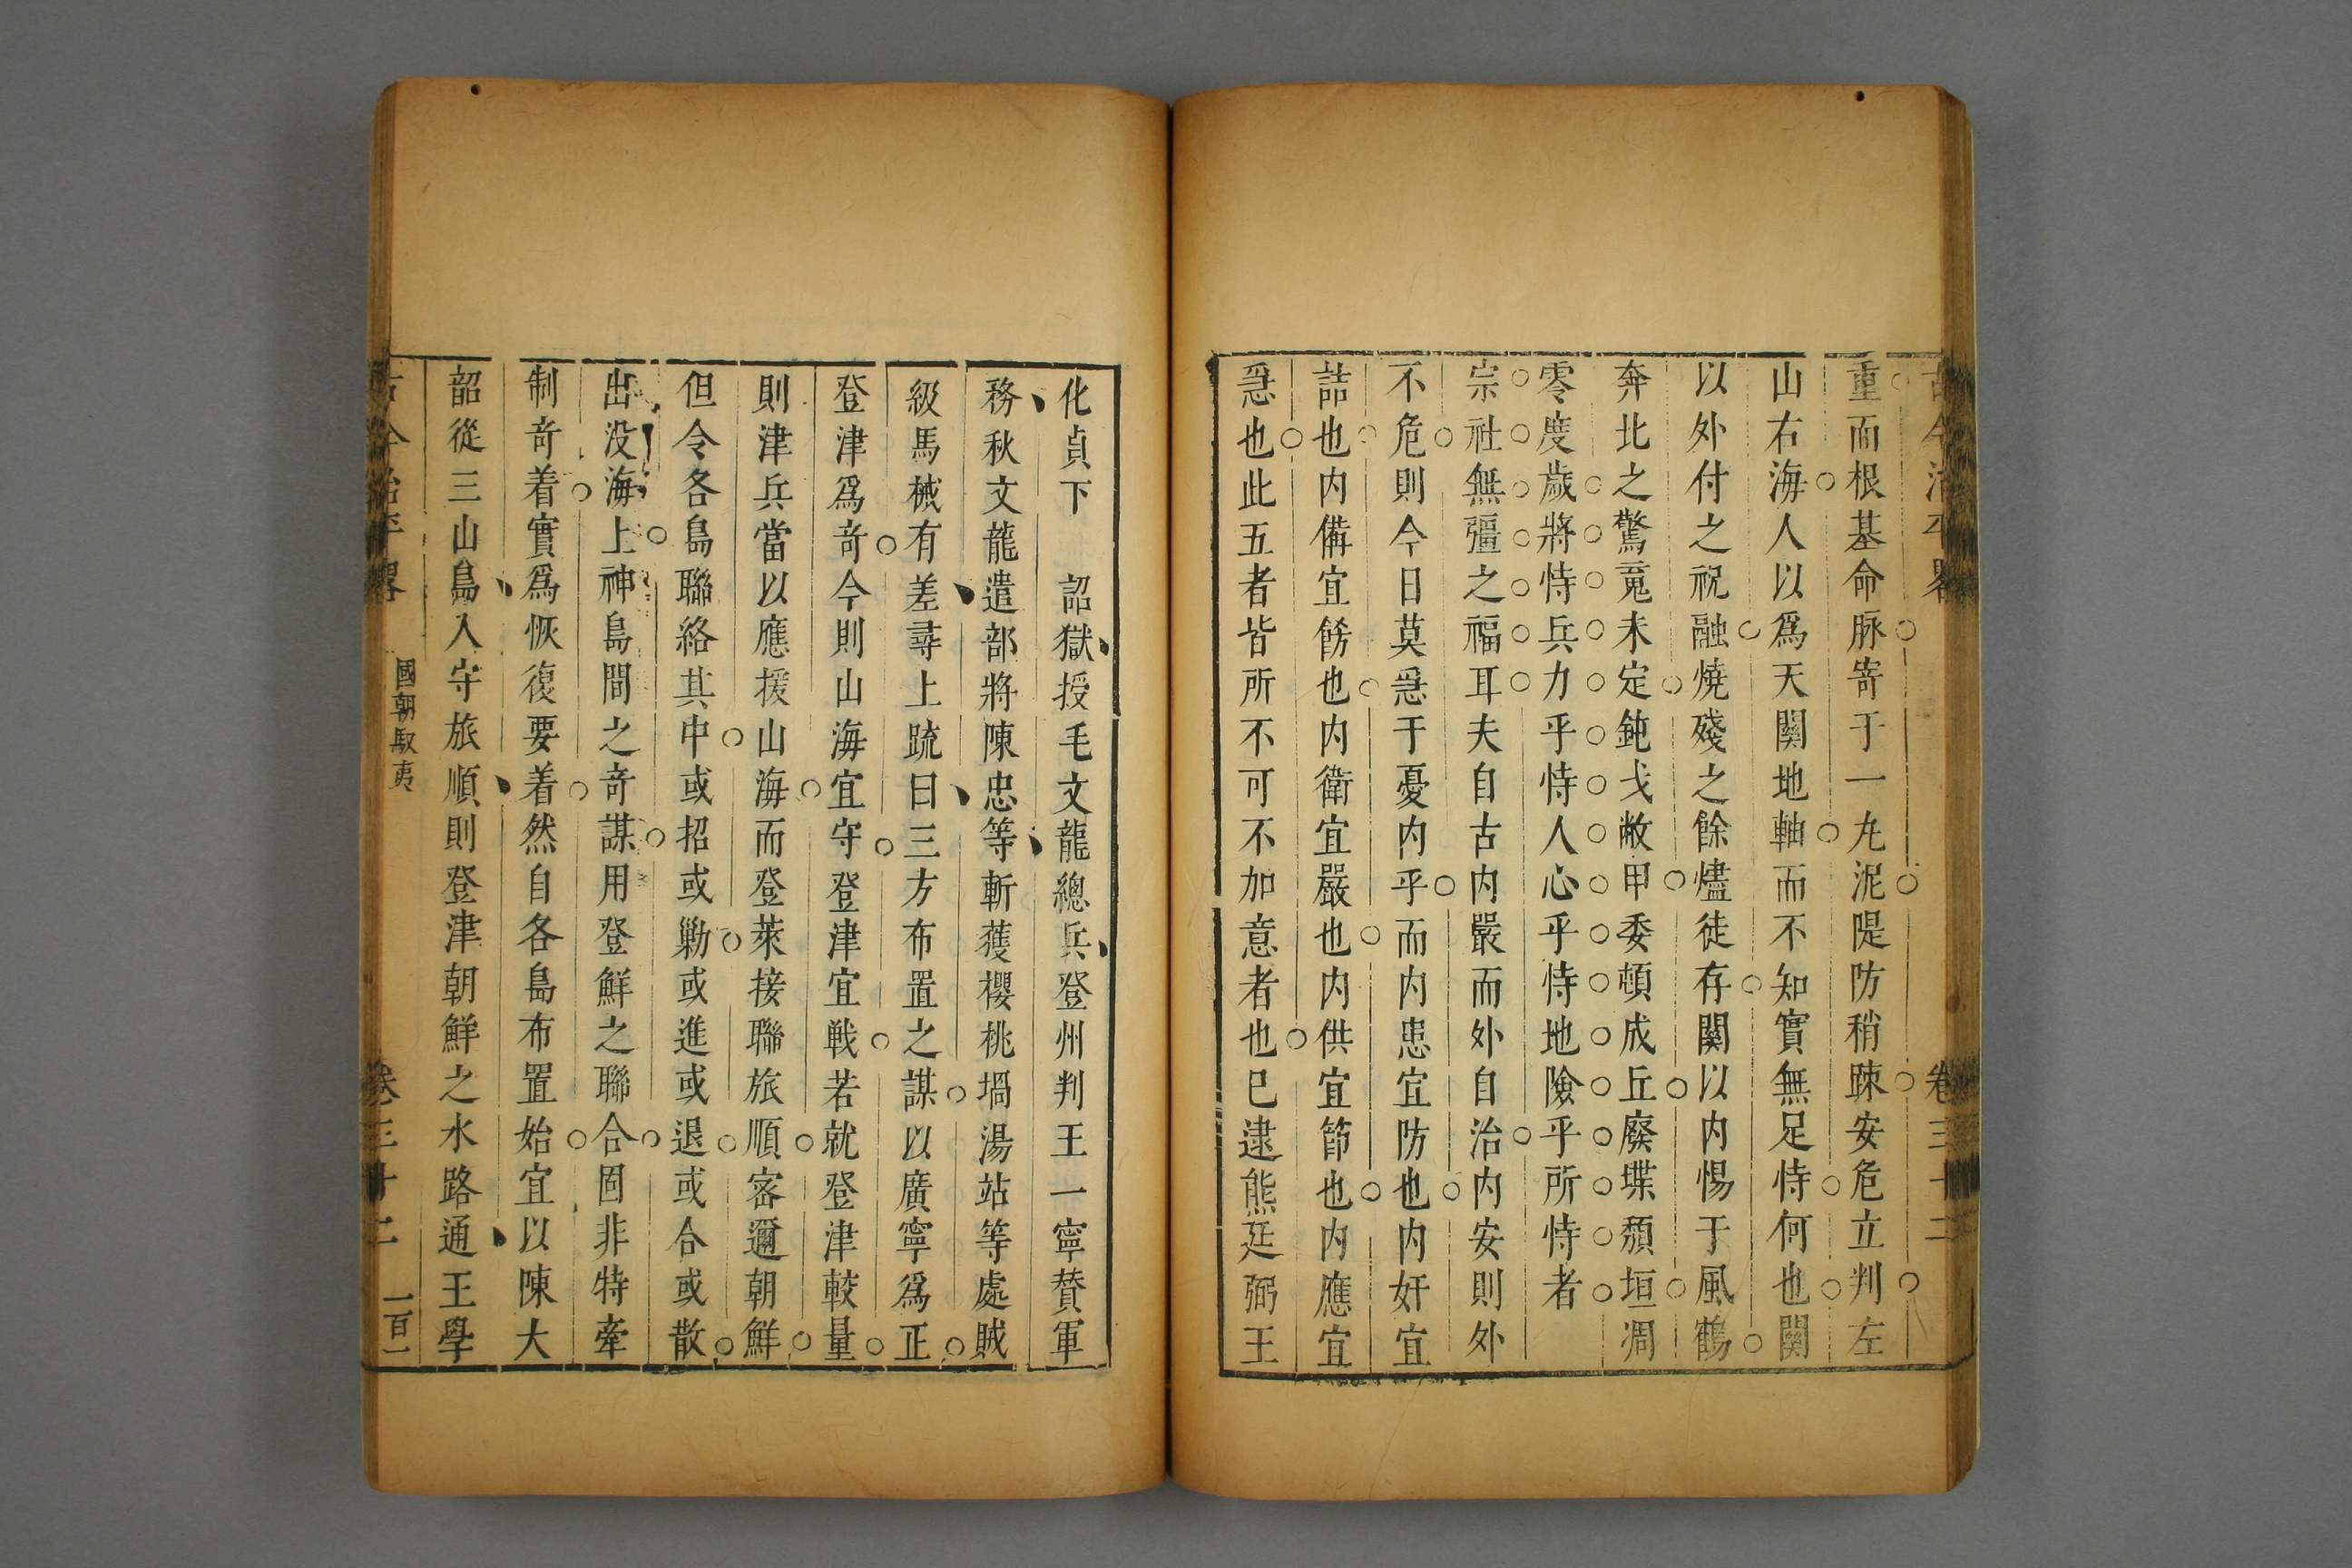 古今治平畧
卷三十二
重而根基命脉寄于一丸泥隄防稍踈安危立判左
山右海人以爲天關地軸而不知實無足恃何也關
以外付之祝融燒殘之餘燼徒存關以内惕于風鶴
奔北之驚䰟未定鈍戈敝甲委頓成丘廢堞頹垣凋
零度歲將恃兵力乎恃人心乎恃地險乎所恃者
宗社無彊之福耳夫自古内嚴而外自治内安則外
不危則今日莫亟于憂内乎而内患宜防也内奸宜
詰也内備宜餙也内衛宜嚴也内供宜節也内應宜
亟也此五者皆所不可不加意者也已逮熊廷弼王
化貞下 詔獄授毛文龍總兵登州判王一寧賛軍
務秋文龍遣部將陳忠等斬獲櫻桃堝湯站等處賊
級馬械有差尋上䟽曰三方布置之謀以廣寧爲正
登津爲竒今則山海宜守登津宜戰若就登津較量
則津兵當以應援山海而登萊接聯旅順密邇朝鮮
但令各島聯絡其中或招或勦或進或退或合或散
出没海上神島間之竒謀用登鮮之聯合固非特牽
制竒着實爲恢復要着然自各島布置始宜以陳大
韶從三山島入守旅順則登津朝鮮之水路通王學
古今治平畧
國朝馭夷
卷三十二
一百一